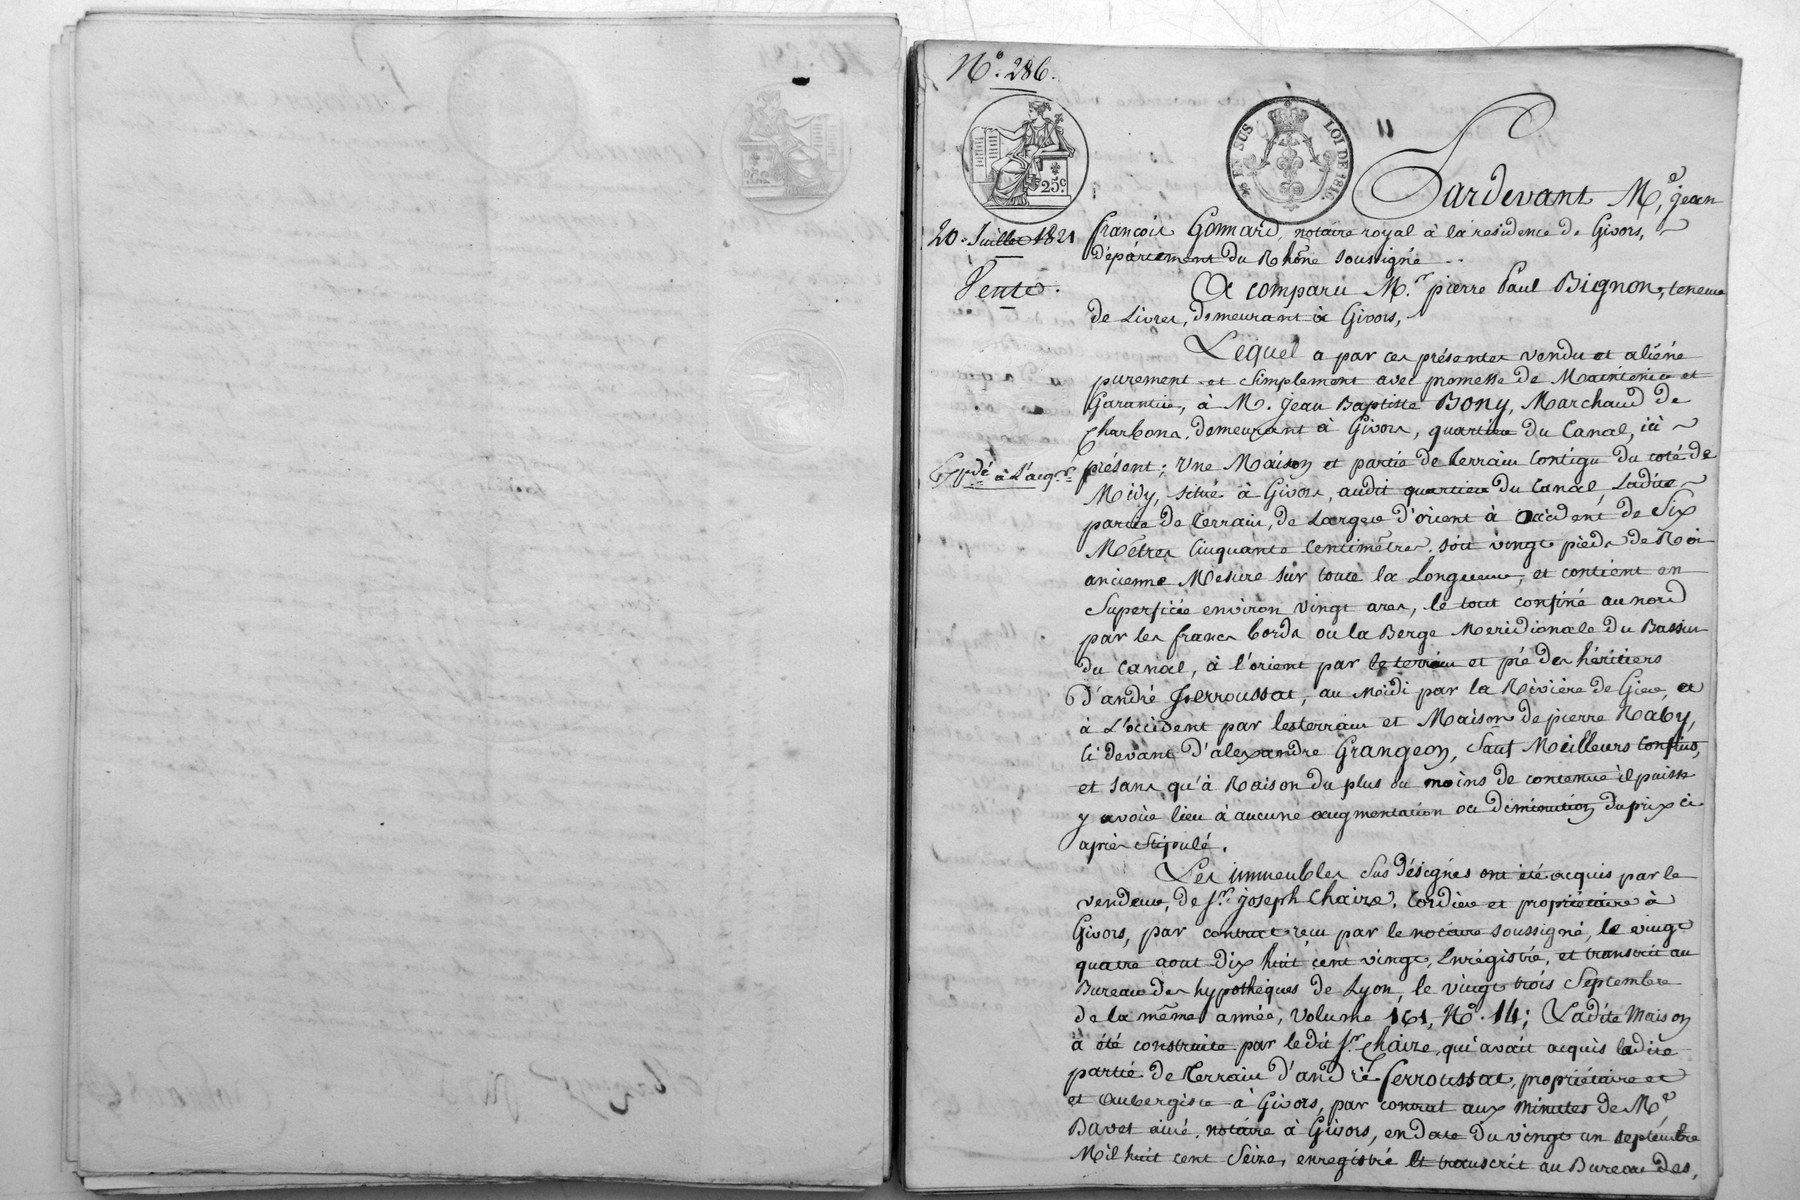 N.° 286.
EN SUS
LOI DE 1816.
25.c
Pardevant M.e jean
20. Juillet 1821
françois Gonnard, notaire royal à la residence de Givors,
département du Rhône soussigné
Vente.
A comparu M.r pierre Paul Bignon, teneur
de Livres, demeurant à Givors,
Lequel a par ces présentes vendu et aliéné
purement et simplement avec promesse de Maintenir et
Garantir, à M. jean Baptiste Bony, Marchand de
Charbons, demeurant à Givors, quartier du Canal, ici
Exp.dé à L'acq.r
présent; Une Maison et partie de terrain contigu du coté de
Midy, situé à Givors, audit quartier du Canal Ladite
partie de terrain, de Largeur d'orient à occident de Six
Mètres Cinquante Centimètres, soit vingt pieds de Roi
ancienne Mesure sur toute la Longueur, et contient en
Superficie environ vingt ares, le tout confiné au nord
par les francs bords ou la Berge Meridionale du Bassin
du Canal, à l'orient par le terrain et pié des héritiers
d'andré ferroussat, au Midi par la Rivière de Gier, et
à L'occident par les terrain et Maison de pierre Raby,
Ci devant d'alexandre Grangeon, Sauf Meilleurs Confins,
et sans qu'à Raison du plus ou moins de contenue il puisse
y avoir lieu à aucune augmentation ou diminution du prix ci
après stipulé.
Les immeubles Sus Désignés ont été acquis par le
vendeur, de S.r joseph Chaize, Cordier et propriétaire à
Givors, par contrat reçu par le notaire soussigné, le vingt
quatre aout dix huit cent vingt, Enrégistré, et transcrit au
Bureau des hypothèques de Lyon, le vingt trois Septembre
de la même année, Volume 161, N.° 14; Ladite Maison
a été construite par le dit S.r Chaize, qui avait acquis ladite
partie de terrain d'andré ferroussat, propriétaire et
et Aubergiste à Givors, par contrat aux minutes de M.e
Bavet ainé, notaire à Givors, en date du vingt un septembre
Mil huit cent Seize, enregistré Et transcrit au Bureau des,